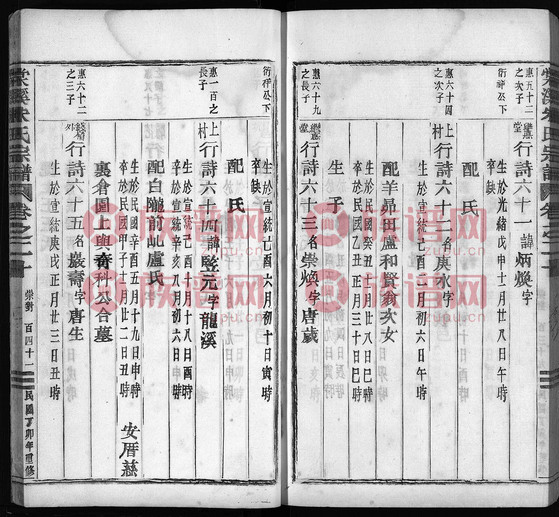 惠五十二
之次子
繼惠
堂
行詩六十一諱炳煥字
生於光緒戊申十二月廿八日午時
卒缺
衍祥公下
惠六十四
之次子
上村
行詩六十二名庚水字
生於宣統己酉二月初六日午時
卒於民國癸丑八月三十日巳時
配羊昴田盧和賢翁次女
生於
生子
惠六十九
之長子
行詩六十三名崇煥字唐歲
生於宣統己酉六月初十日寅時
卒缺
配氏
衍祥公下
惠一百之
長子
上村
行詩六十四諱監元字龍溪
生於宣統己酉十月十八日酉時
卒於宣統辛亥八月初六日時
配白隴前屺盧氏
生於民國辛酉五月十九日申時
卒於民國甲子十月廿二日申時
裏倉園上與裔科公合墓
安厝慈
惠六十二
之三子
行詩六十五名嚴壽字唐生
生於宣統庚戌正月廿三日丑時
棠溪朱氏宗譜
卷之二十
崇對
百四十二
民國丁卯年重修